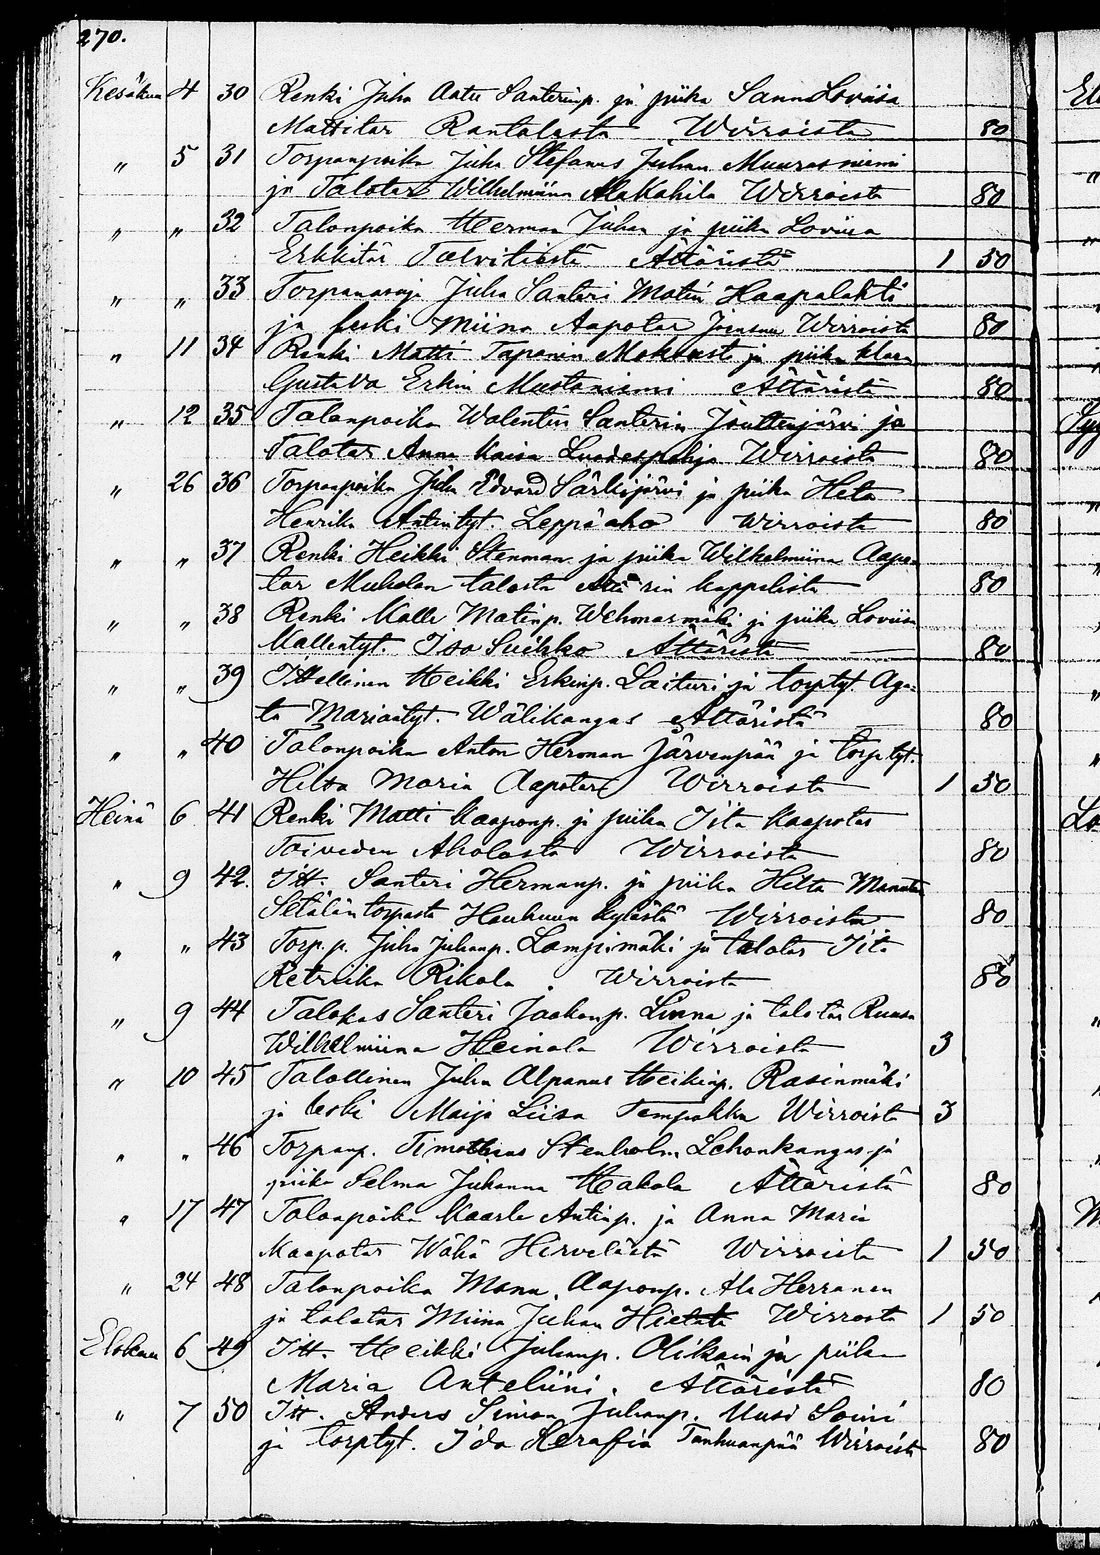 270.
Kesäkuu 4 30 Renki Juha Aatu Santerinp. ja piika Sanna Loviisa
Mattitar Rantalasta Wirroista 80
" 5 31 Torpanpoika Juha Stefanus Juhan Muurasniemi
ja Talotar Wilhelmiina Alakahila Wirroista 80
" " 32 Talonpoika Herman Juhan ja piika Loviisa
Erkkitär Talvitiestä Ättäristä 1 50
" " 33 Torpanasuja Juha Santeri Matin Haapalahti
ja leski Miina Aapotar Joensuu Wirroista 80
" 11 34 Renki Matti Tapanin ja piika Klara
Gustava Erkin Mustaniemi Ättäristä 80
" 12 35 Talonpoika Walentin Santerin Jouttenjärvi ja
Talotar Anna Kaisa Luodespohja Wirroista 80
" 26 36 Torpanpoika Juha Edvard Särkijärvi ja piika Heta
Henrika Antintyt. Leppäaho Wirroista 80
" " 37 Renki Heikki Stenman ja piika Wilhelmiina Aapo-
tar talosta Ättärin kappelista 80
" " 38 Renki Kalle Matinp. Wehmasmäki ja piika Loviisa
Kallentyt. Iso Suihko Ättäristä 80
" " 39 Ittellinen Heikki Erkinp. Laituri ja torptyt. Aga-
ta Mariatyt. Wälikangas Ättäristä 80
" " 40 Talonpoika Anton Herman Järvenpää ja torp.tyt.
Hilta Maria Aapotar Wirroista 1 50
Heinä 6 41 Renki Matti Kaaponp. ja piika Iita Kaapotar
Toiveden Aholasta Wirroista 80
" 9 42. Itt. Santeri Hermanp. ja piika Hilta
Setälän torpasta Hauhuun kylästä Wirroista 80
" " 43 Torp.p. Juha Juhanp. Lampimäki ja talotar Iita
Retriika Rikala. Wirroista 80
" 9 44 Talokas Santeri Jaakonp. Linna ja talotar Ruusa
Wilhelmiina Heinola Wirroista 3
" 10 45 Talollinen Juha Alpanus Heikinp. Rasinmäki
ja leski Maija Liisa Tempakka Wirroista 3
" " 46 Torpanp. Timotheus Stenholm Lehonkangas ja
piika Selma Juhanna Hakola Ättäristä 80
" 17 47 Talonpoika Kaarle Antinp. ja Anna Maria
Kaapotar Wähä Hirvelästä Wirroista 1 50
" 24 48 Talonpoika Manu Aaponp. Ala Herranen
ja talotar Miina Juhan Wirrosta 1 50
Elokuu 6 49 Itt. Heikki Juhanp. Olikain ja piika
Maria Anteliini. Ättäristä 80
" 7 50 Itt. Anders Simon Juhanp. Uusi Soini
ja torptyt. Ida Serafia Tanhuanpää Wirroista 80